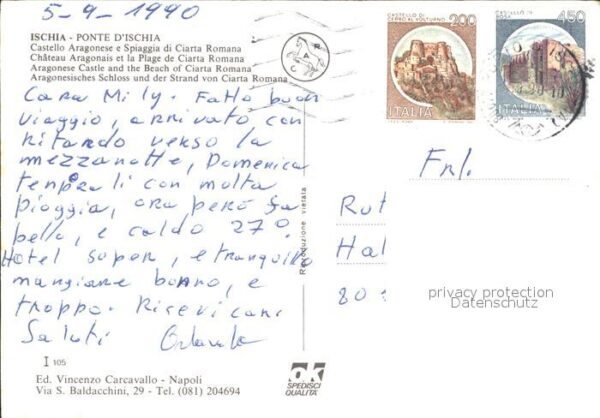 5-9-1990
ISCHIA - PONTE D'ISCHIA
Castello Aragonese e Spiaggia di Ciarta Romana
Château Aragonais et la Plage de Ciarta Romana
Aragonese Castle and the Beach of Ciarta Romana
Aragonesisches Schloss und der Strand von Ciarta Romana
Cara Mily. Fatto buon
viaggio, arrivato con
ritardo verso la
mezzanotte, Domenica
temporali con molta
pioggia, ora però fa
bello, e caldo 27°.
Hotel super, e tranquillo
mangiare buono, e
troppo. Ricevi cari
Saluti Orlando
I 105
Ed. Vincenzo Carcavallo - Napoli
Via S. Baldacchini, 29 - Tel. (081) 204694
Riproduzione vietata
OK
SPEDISCI
QUALITÀ
CASTELLO DI
CERRO AL VOLTURNO
200
ITALIA
CASTELLO DI
450
ITALIA
Frl.
Rut
Hal
80
privacy protection
Datenschutz